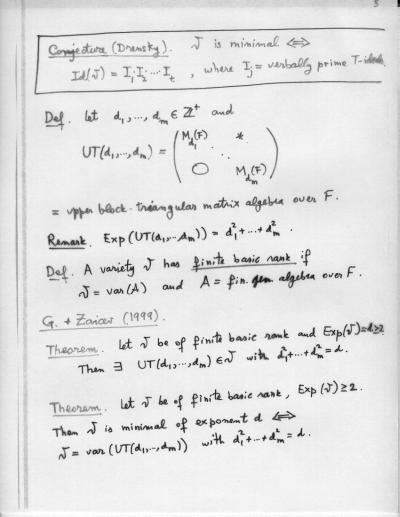 5
Conjecture (Drensky). 𝒱 is minimal ⇔
Id(𝒱) = I₁·I₂·…·Iₜ, where Iⱼ = verbally prime T-ideals.
Def. Let d₁,…,dₘ ∈ ℤ⁺ and
UT(d₁,…,dₘ) = ( M_{d₁}(F) *
⋱
O M_{dₘ}(F) )
= upper block-triangular matrix algebra over F.
Remark. Exp(UT(d₁,…,dₘ)) = d₁² + … + dₘ².
Def. A variety 𝒱 has finite basic rank if
𝒱 = var(A) and A = fin. gen. algebra over F.
G. + Zaicev (1999).
Theorem. Let 𝒱 be of finite basic rank and Exp(𝒱) = d ≥ 2.
Then ∃ UT(d₁,…,dₘ) ∈ 𝒱 with d₁² + … + dₘ² = d.
Theorem. Let 𝒱 be of finite basic rank, Exp(𝒱) ≥ 2.
Then 𝒱 is minimal of exponent d ⇔
𝒱 = var(UT(d₁,…,dₘ)) with d₁² + … + dₘ² = d.